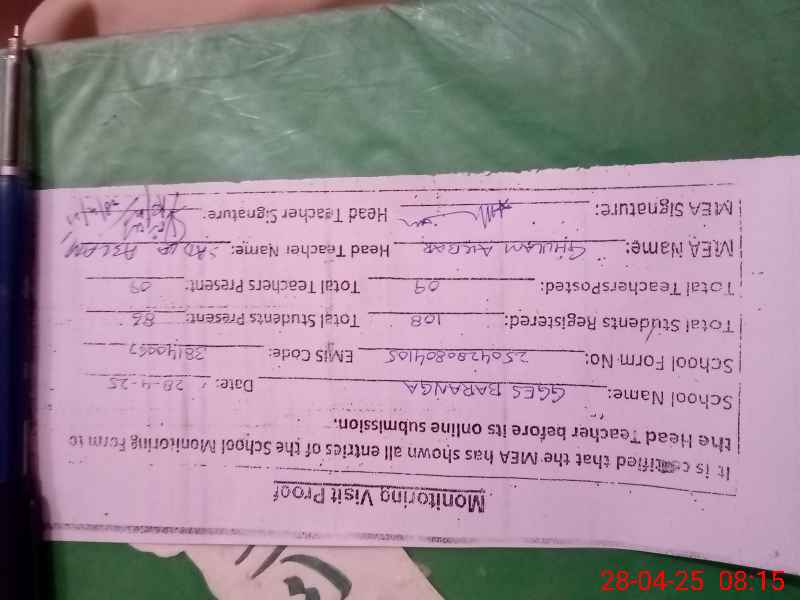 Monitoring Visit Proof
It is certified that the MEA has shown all entries of the School Monitoring Form to
the Head Teacher before its online submission.
School Name: GGES BARANGA Date: 28-4-25
School Form No: 2504280804105 EMIS Code: 38140057
Total Students Registered: 108 Total Students Present: 86
Total TeachersPosted: 09 Total Teachers Present: 09
MEA Name: GHULAM AKBAR Head Teacher Name: ASLAM
MEA Signature: Head Teacher Signature:
28-04-25 08:15